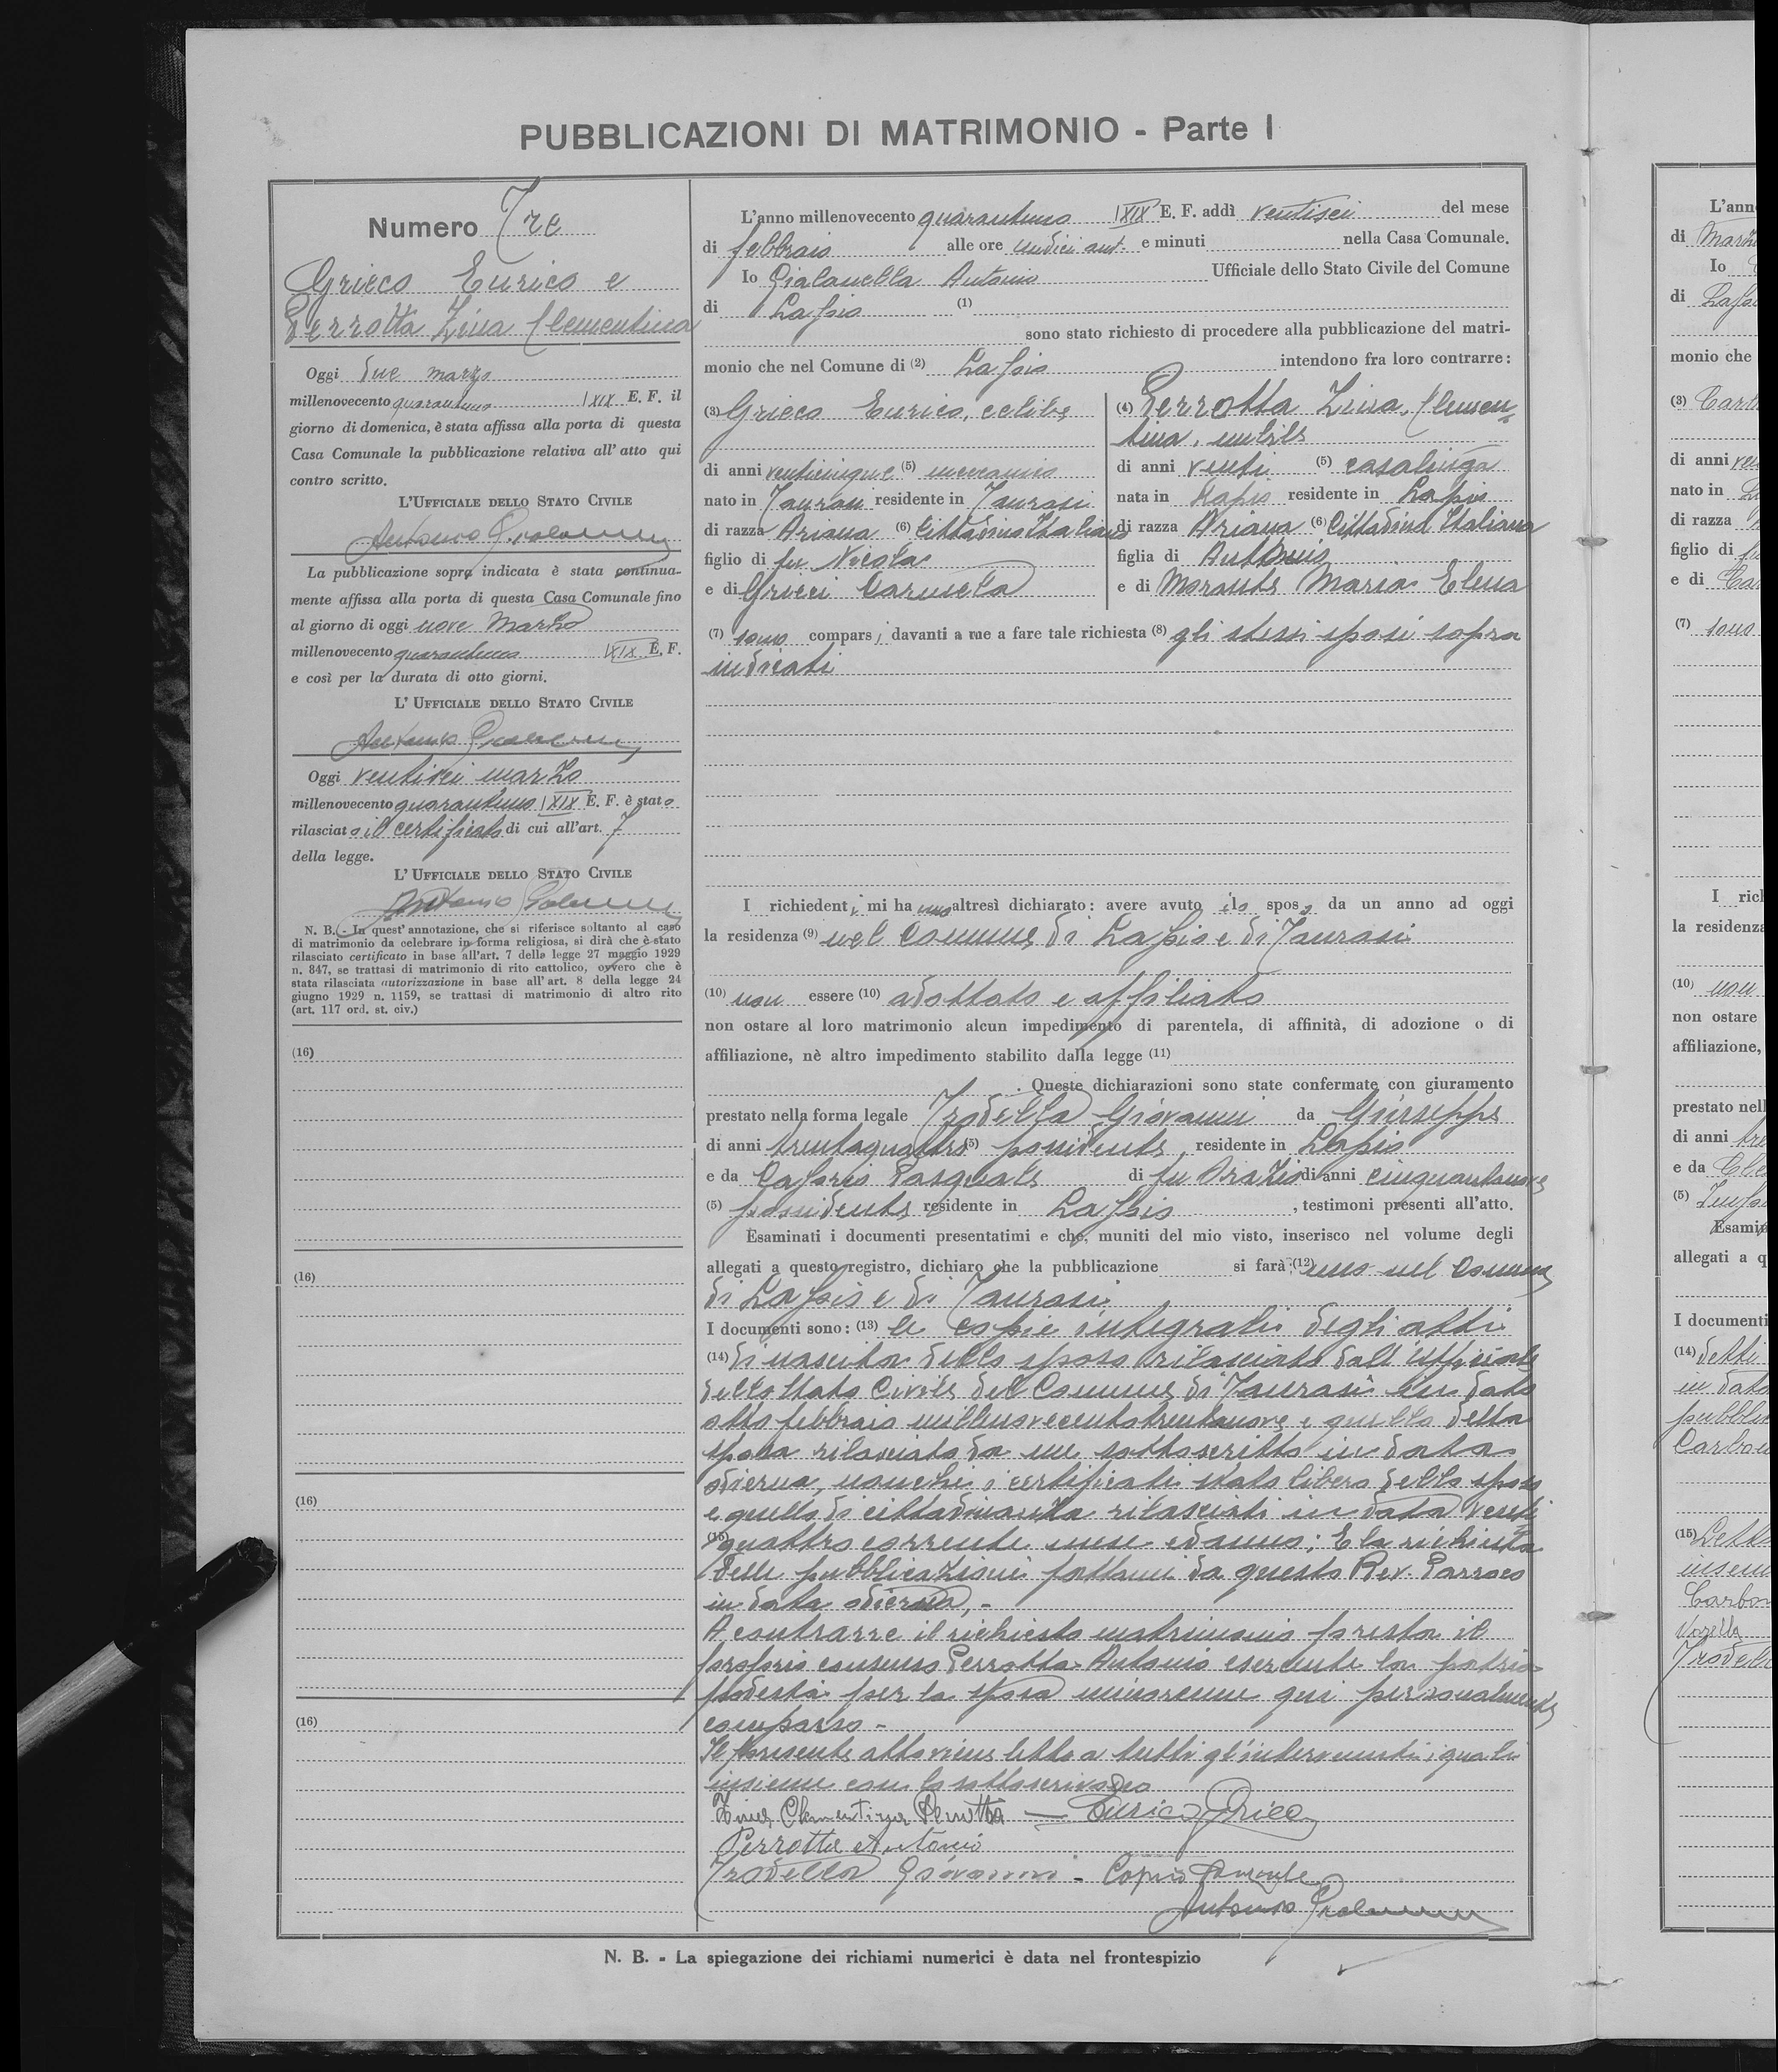 PUBBLICAZIONI DI MATRIMONIO - Parte I
Numero Tre
Grieco Enrico e
Perrotta Zina Clementina
Oggi due marzo
millenovecento quarantuno XIX E. F. il
giorno di domenica, è stata affissa alla porta di questa
Casa Comunale la pubblicazione relativa all' atto qui
contro scritto.
L'UFFICIALE DELLO STATO CIVILE
Antonio
La pubblicazione sopra indicata è stata continua-
mente affissa alla porta di questa Casa Comunale fino
al giorno di oggi nove Marzo
millenovecento quarantuno XIX E. F.
e così per la durata di otto giorni.
L' UFFICIALE DELLO STATO CIVILE
Antonio
Oggi ventisei marzo
millenovecento quarantuno XIX E. F. è stato
rilasciato il certificato di cui all'art. 7
della legge.
L' UFFICIALE DELLO STATO CIVILE
Antonio
N. B. - In quest' annotazione, che si riferisce soltanto al caso
di matrimonio da celebrare in forma religiosa, si dirà che è stato
rilasciato certificato in base all'art. 7 della legge 27 maggio 1929
n. 847, se trattasi di matrimonio di rito cattolico, ovvero che è
stata rilasciata autorizzazione in base all' art. 8 della legge 24
giugno 1929 n. 1159, se trattasi di matrimonio di altro rito
(art. 117 ord. st. civ.)
(16)
(16)
(16)
(16)
L'anno millenovecento quarantuno XIX E. F. addì ventisei del mese
di febbraio alle ore undici ant. e minuti nella Casa Comunale.
Io Gialanella Antonio Ufficiale dello Stato Civile del Comune
di Lapio (1)
sono stato richiesto di procedere alla pubblicazione del matri-
monio che nel Comune di (2) Lapio intendono fra loro contrarre:
(3) Grieco Enrico, celibe
di anni venticinque (5) meccanico
nato in Taurasi residente in Taurasi
di razza Ariana (6) Cittadino Italiano
figlio di fu Nicola
e di Grieci Carmela
(4) Perrotta Zina, Clemen-
tina, nubile
di anni venti (5) casalinga
nata in Lapio residente in Lapio
di razza Ariana (6) Cittadina Italiana
figlia di Antonio
e di Morante Maria Elena
(7) sono comparsi davanti a me a fare tale richiesta (8) gli stessi sposi sopra
indicati
I richiedenti mi hanno altresì dichiarato: avere avuto ilo sposo da un anno ad oggi
la residenza (9) nel Comune di Lapio e di Taurasi
(10) non essere (10) adottato e affiliato
non ostare al loro matrimonio alcun impedimento di parentela, di affinità, di adozione o di
affiliazione, nè altro impedimento stabilito dalla legge (11)
. Queste dichiarazioni sono state confermate con giuramento
prestato nella forma legale Trodella Giovanni da Giuseppe
di anni trentaquattro (5) possidente, residente in Lapio
e da Caprio Pasquale di fu Orazio di anni cinquantanove
(5) possidente residente in Lapio , testimoni presenti all'atto.
Esaminati i documenti presentatimi e che, muniti del mio visto, inserisco nel volume degli
allegati a questo registro, dichiaro che la pubblicazione si farà: (12) nel Comune
di Lapio e di Taurasi
I documenti sono: (13) le copie integrali degli atti
(14) di nascita dello sposo rilasciato dall'ufficiale
dello stato Civile del Comune di Taurasi in data
otto febbraio millenovecentotrentanove e quello della
sposa rilasciato da me sottoscritto in data
odierna, nonchè i certificati stato libero dello sposo
e quello di cittadinanza rilasciati in data venti
(15) quattro corrente mese ed anno; E la richiesta
delle pubblicazioni fattami da questo Rev. Parroco
in data odierna,-
A contrarre il richiesto matrimonio presta il
proprio consenso Perrotta Antonio esercente la patria
podestà per la sposa minorenne qui personalmente
comparso -
Il presente atto viene letto a tutti gl'intervenuti i quali
insieme con lo sottoscrivono
Zina Clementina Perrotta — Enrico Grieco
Perrotta Antonio
Trodella Giovanni - Caprio Pasquale
Antonio
N. B. - La spiegazione dei richiami numerici è data nel frontespizio
L'ann
di Marzo
Io
di Lapio
monio che
(3)
di anni
nato in
di razza
figlio di
e di
(7) sono
I rich
la residenza
(10) non
non ostare
affiliazione,
prestato nell
di anni
e da
(5)
Esamin
allegati a q
I documenti
(14) detti
in data
(15)